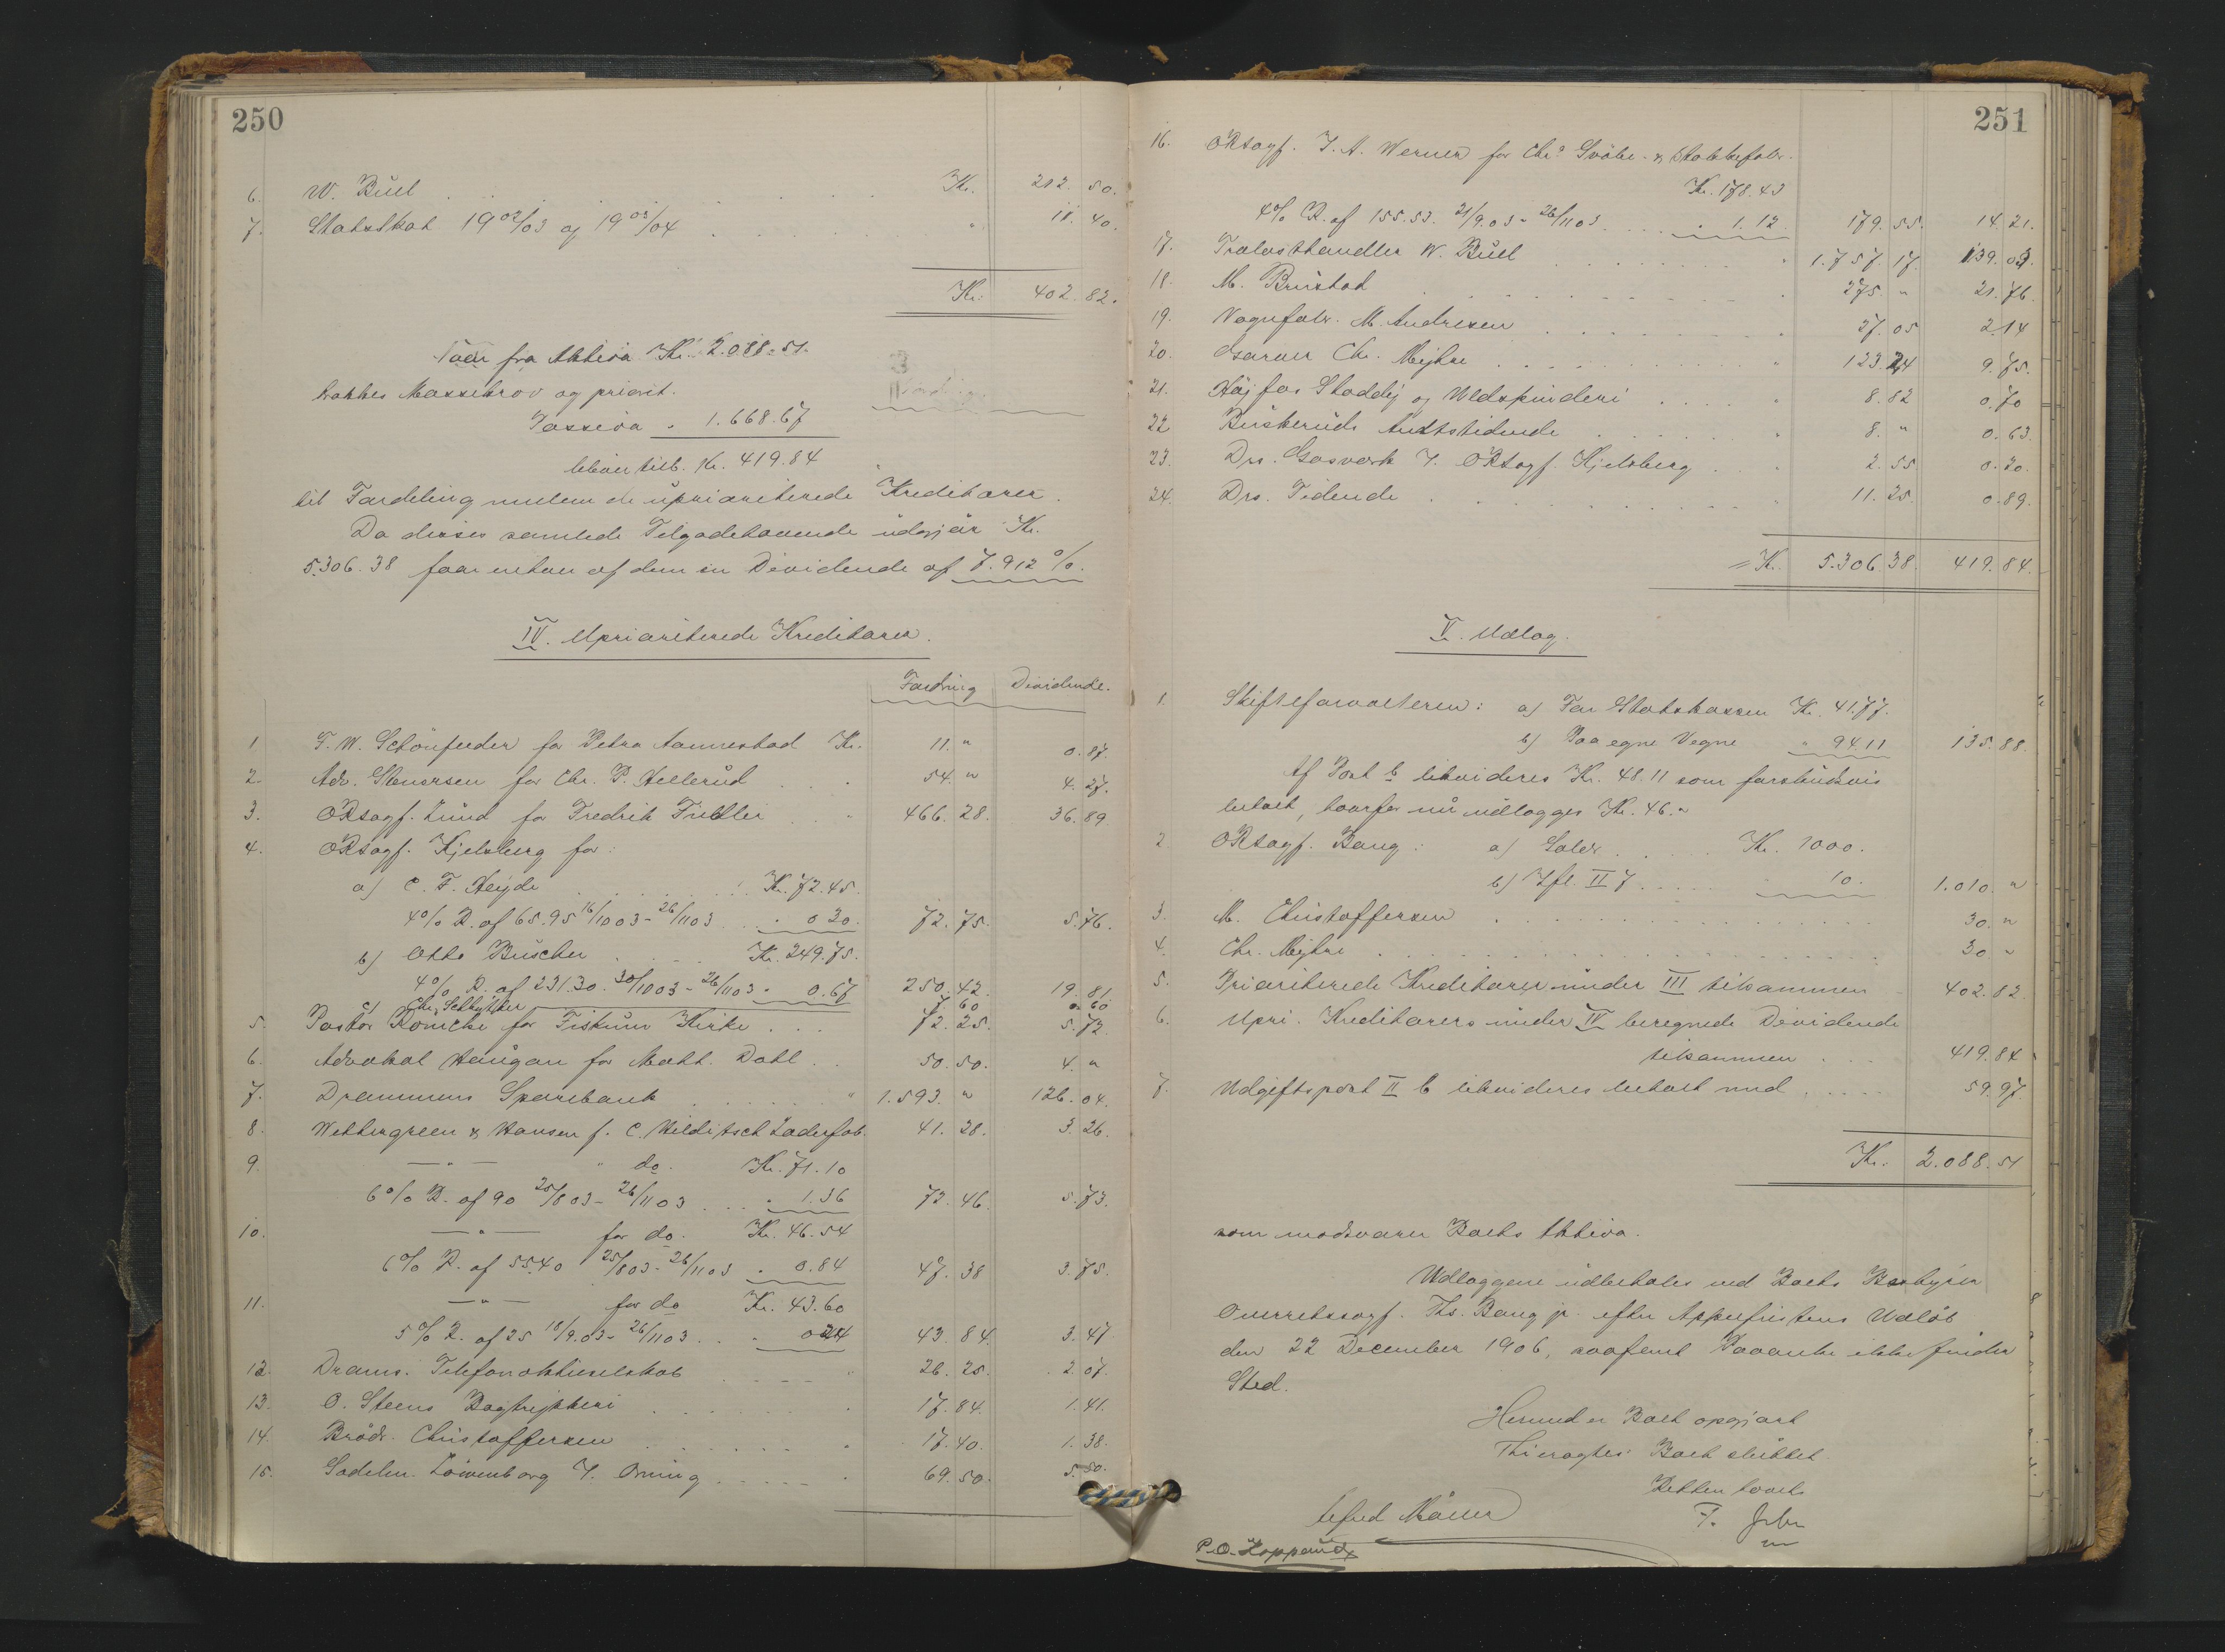 250
6. W. Buel Kr. 212. 50.
7. Statsskat 19 02/03 og 19 03/04 " 11. 40.
Kr. 402. 82.
Naar fra Aktiva Kr. 2.088.51.
trækkes Massekrav og priorit.
Passiva " 1.668.67
bliver tilb. Kr. 419.84
til Fordeling mellem de uprioriterede Kreditorer.
Da disses samlede Tilgodehavende udgjør Kr.
5.306.38 faar enhver af dem en Dividende af 7.912 %.
IV. Uprioriterede Kreditorer.
Fordring Dividende.
1 F. W. Schönfelder for Petra Aamestad Kr. 11. " 0.87.
2 Adv. Stenersen for Chr. P. Hellerud 54. " 4.27.
3. ORsagf. Lund for Fredrik 466.28. 36.89
4. ORsagf. Kjelsberg for:
a) C. F. Heyde Kr. 72.45.
4% R. af 65.95 16/10 03 - 26/11 03 " 0.30. 72.75. 5.76.
b) Otto Buscher Kr. 249.75.
4% R. af 231.30. 30/10 03 - 26/11 03 " 0.67 250.42. 19.81
c) Chr. 7.60 0.60
5. Pastor for Fiskum Kirke 72.25. 5.72.
6. Advokat Haugan for Math. Dahl 50.50. 4. "
7. Drammens Sparebank " 1.593. " 126.04.
8. Wettergreen & Hansen f. C. Hilditsch Läderfab. 41.28. 3.26.
9. — " — " do. Kr. 71.10
6% R. af 90 25/8 03 - 26/11 03 " 1.36 72.46. 5.73.
10. — " — for do. Kr. 46.54
6% R. af 55.40 25/8 03 - 26/11 03 " 0.84 47.38 3.75.
11. — " — for do Kr. 43.60
5% R. af 25 18/9.03 - 26/11 03 " 0.24 43.84. 3.47
12. Drams. Telefonaktieselskab " 26.25. 2.07.
13. O. Steens Bogtrykkeri " 17.84. 1.41.
14. Brödr. Christoffersen " 17.40. 1.38.
15. Sadelm. Löwenborg 69.50. 5.50.
251
16. ORsagf. J. A. Werner for Chr.a & Stokkefabr.
Kr. 178.43
4% R. af 155.53. 21/9.03 - 26/11 03 " 1.12. 179.55. 14.21.
17. Trælasthandler W. Buel " 1.757.17. 139.03.
18. M. Brustad 275. " 21.76.
19. Vognfabr. M. Andresen 27.05 2.14
20. Garver Chr. Myhre " 123.24 9.75.
21. Høifos Shoddy og Uldspinderi " 8.82 0.70
22 Buskeruds Amtstidende " 8. " 0.63.
23. Drs. Gasværk v. ORsagf. Kjelsberg " 2.55 0.20.
24. Drs. Tidende " 11.25. 0.89.
= Kr. 5.306.38. 419.84.
V. Udlæg.
1. Skifteforvalteren: a) For Statskassen Kr. 41.77.
b) Paa egne Vegne " 94.11 135.88.
Af Post b likvideres Kr. 48.11 som forskudsvis
betalt, hvorfor nu udlægges Kr. 46."
2. ORsagf. Bang: a) Salær Kr. 1000.
b) Jfr. II 7 10. 1.010. "
3. M. Christoffersen 30. "
4. Chr. Myhre 30. "
5. Prioriterede Kreditorer under III tilsammen 402.82.
6. Upri. Kreditorers under IV beregnede Dividende
tilsammen 419.84
7. Udgiftspost II 6 likvideres betalt med 59.97
Kr. 2.088.51
som modsvarer Boets Aktiva.
Udlæggene udbetales ved Boets Bestyrer
Overretssagf. Ths. Bang jr. efter Appelfristens Udløb
den 22 December 1906, saafremt Paaanke ikke finder
Sted.
Hermed er Boet opgjort
Thi eragtes: Boet sluttet.
Retten hævet
Alfred Möller F.
P. O.